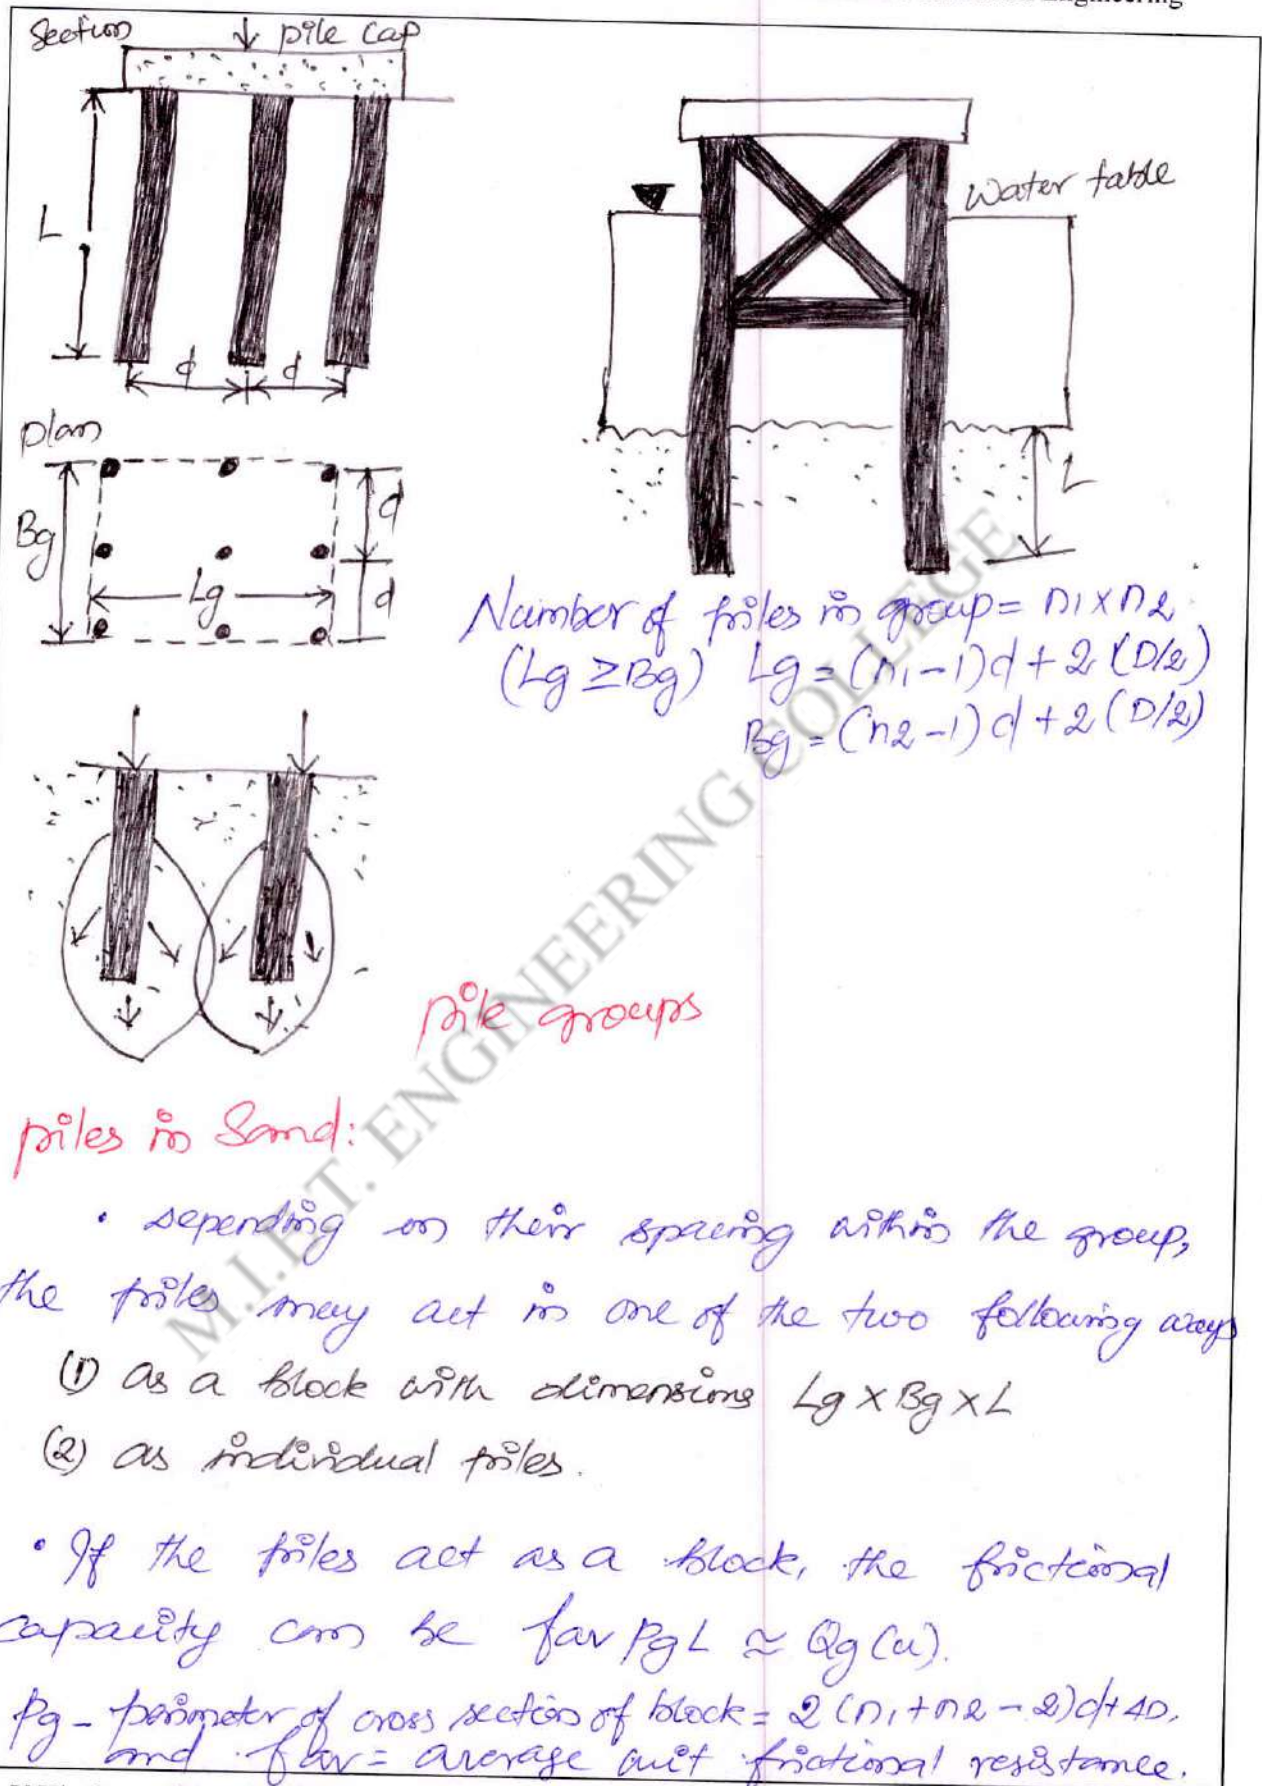 Engineering
Section
pile cap
L
d d
Water table
L
plan
Bg
Lg
d
d
Number of piles in group = n1 x n2
(Lg ≥ Bg) Lg = (n1 - 1)d + 2 (D/2)
Bg = (n2 - 1)d + 2 (D/2)
pile groups
piles in Sand:
• Depending on their spacing within the group,
the piles may act in one of the two following ways
(1) as a block with dimensions Lg x Bg x L
(2) as individual piles.
• If the piles act as a block, the frictional
capacity can be fav Pg L ≃ Qg(u).
Pg - perimeter of cross section of block = 2 (n1 + n2 - 2)d + 4D.
and fav = average unit frictional resistance.
M.I.E.T. ENGINEERING COLLEGE